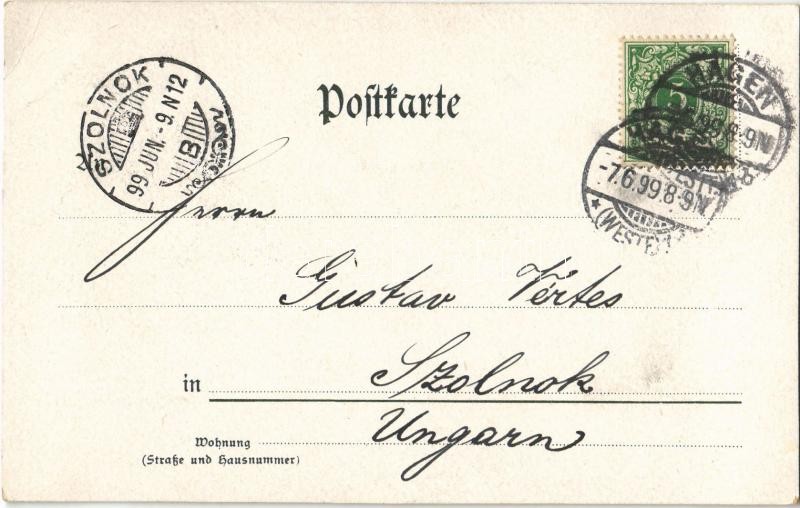 SZOLNOK
99 JUN. -9 N 12
B
Postkarte
5
HAGEN
99.8-9N
HAGEN
-7.6.99.8-9N
* (WESTF.) 1
Herrn
Gustav Vértes
in Szolnok
Ungarn
Wohnung
(Straße und Hausnummer)